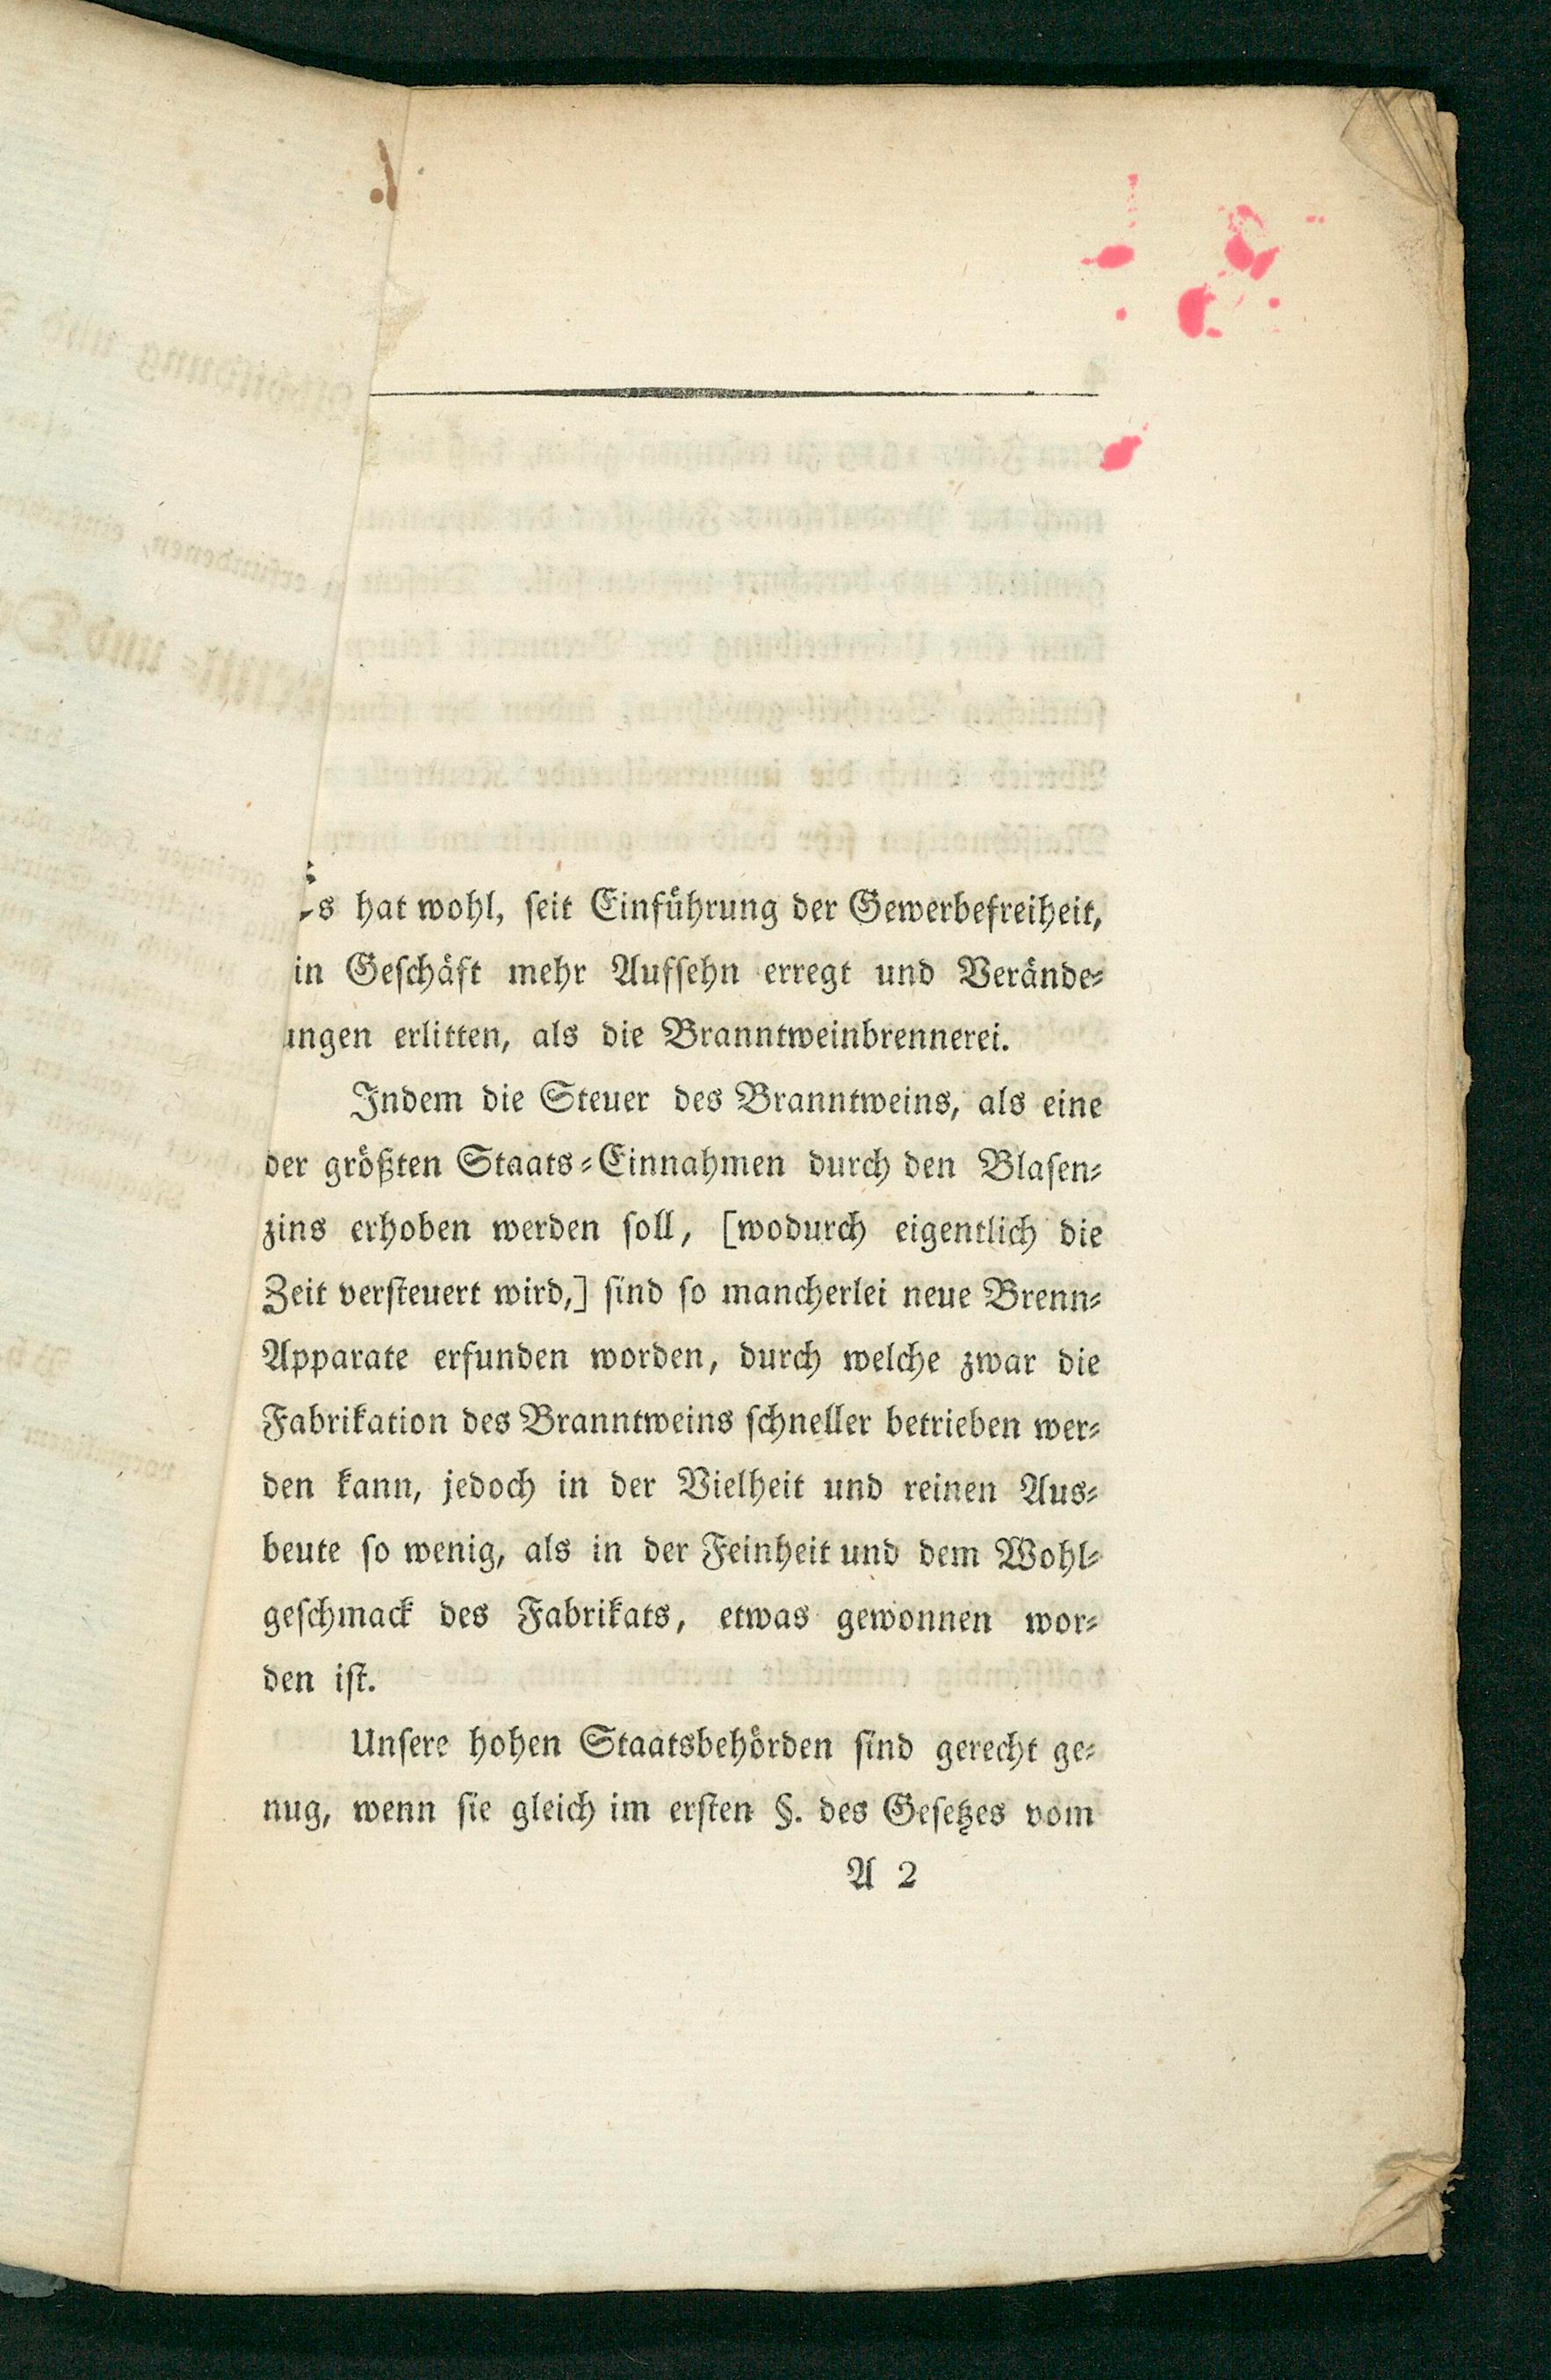 s hat wohl, seit Einführung der Gewerbefreiheit,
in Geschäft mehr Aufsehn erregt und Verände-
ungen erlitten, als die Branntweinbrennerei.
Indem die Steuer des Branntweins, als eine
der größten Staats-Einnahmen durch den Blasen-
zins erhoben werden soll, [wodurch eigentlich die
Zeit versteuert wird,] sind so mancherlei neue Brenn-
Apparate erfunden worden, durch welche zwar die
Fabrikation des Branntweins schneller betrieben wer-
den kann, jedoch in der Vielheit und reinen Aus-
beute so wenig, als in der Feinheit und dem Wohl-
geschmack des Fabrikats, etwas gewonnen wor-
den ist.
Unsere hohen Staatsbehörden sind gerecht ge-
nug, wenn sie gleich im ersten §. des Gesetzes vom
A 2